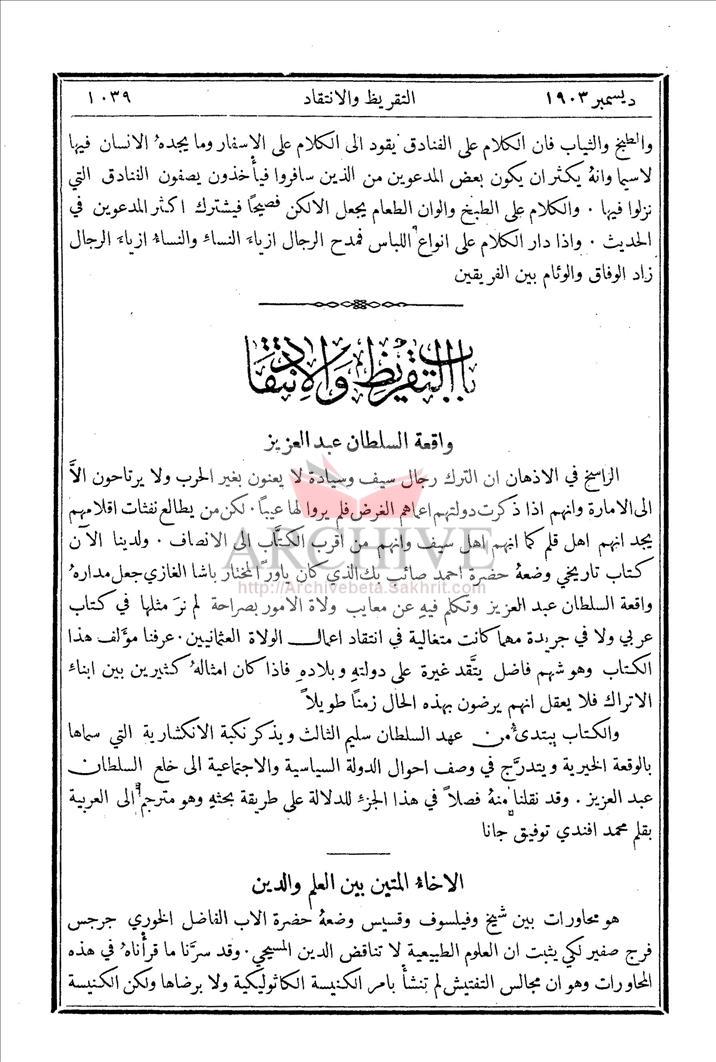 ديسمبر ١٩٠٣ التقريظ والانتقاد ١٠٣٩
والطبخ والثياب فان الكلام على الفنادق يقود الى الكلام على الاسفار وما يجدهُ الانسان فيها
لاسيما وانهُ يكثر ان يكون بعض المدعوين من الذين سافروا فيأخذون يصفون الفنادق التي
نزلوا فيها . والكلام على الطبخ والوان الطعام يجعل الالكن فصيحًا فيشترك اكثر المدعوين في
الحديث . واذا دار الكلام على انواع اللباس فمدح الرجال ازياء النساء والنساءُ ازياء الرجال
زاد الوفاق والوئام بين الفريقين
باب التقريظ والانتقاد
واقعة السلطان عبد العزيز
الراسخ في الاذهان ان الترك رجال سيف وسيادة لا يعنون بغير الحرب ولا يرتاحون الاَّ
الى الامارة وانهم اذا ذكرت دولتهم اعماهم الغرض فلم يروا لها عيباً . لكن من يطالع نفثات اقلامهم
يجد انهم اهل قلم كما انهم اهل سيف وانهم من اقرب الكتَّاب الى الانصاف . ولدينا الآن
كتاب تاريخي وضعهُ حضرة احمد صائب بك الذي كان ياور المختار باشا الغازي جعل مدارهُ
واقعة السلطان عبد العزيز وتكلم فيهِ عن معايب ولاة الامور بصراحة لم نرَ مثلها في كتاب
عربي ولا في جريدة مهما كانت متغالية في انتقاد اعمال الولاة العثمانيين . عرفنا مؤلف هذا
الكتاب وهو شهم فاضل يتَّقد غيرة على دولتهِ وبلادهِ فاذا كان امثالهُ كثيرين بين ابناء
الاتراك فلا يعقل انهم يرضون بهذه الحال زمنًا طويلاً
والكتاب يبتدئُ من عهد السلطان سليم الثالث ويذكر نكبة الانكشارية التي سماها
بالوقعة الخيرية ويتدرَّج في وصف احوال الدولة السياسية والاجتماعية الى خلع السلطان
عبد العزيز . وقد نقلنا منهُ فصلاً في هذا الجزء للدلالة على طريقة بحثهِ وهو مترجم الى العربية
بقلم محمد افندي توفيق جانا
الاخاءُ المتين بين العلم والدين
هو محاورات بين شيخ وفيلسوف وقسيس وضعهُ حضرة الاب الفاضل الخوري جرجس
فرج صفير لكي يثبت ان العلوم الطبيعية لا تناقض الدين المسيحي . وقد سرَّنا ما قرأناهُ في هذه
المحاورات وهو ان مجالس التفتيش لم تنشأ بامر الكنيسة الكاثوليكية ولا برضاها ولكن الكنيسة
ARCHIVE
http://Archivebeta.Sakhrit.com